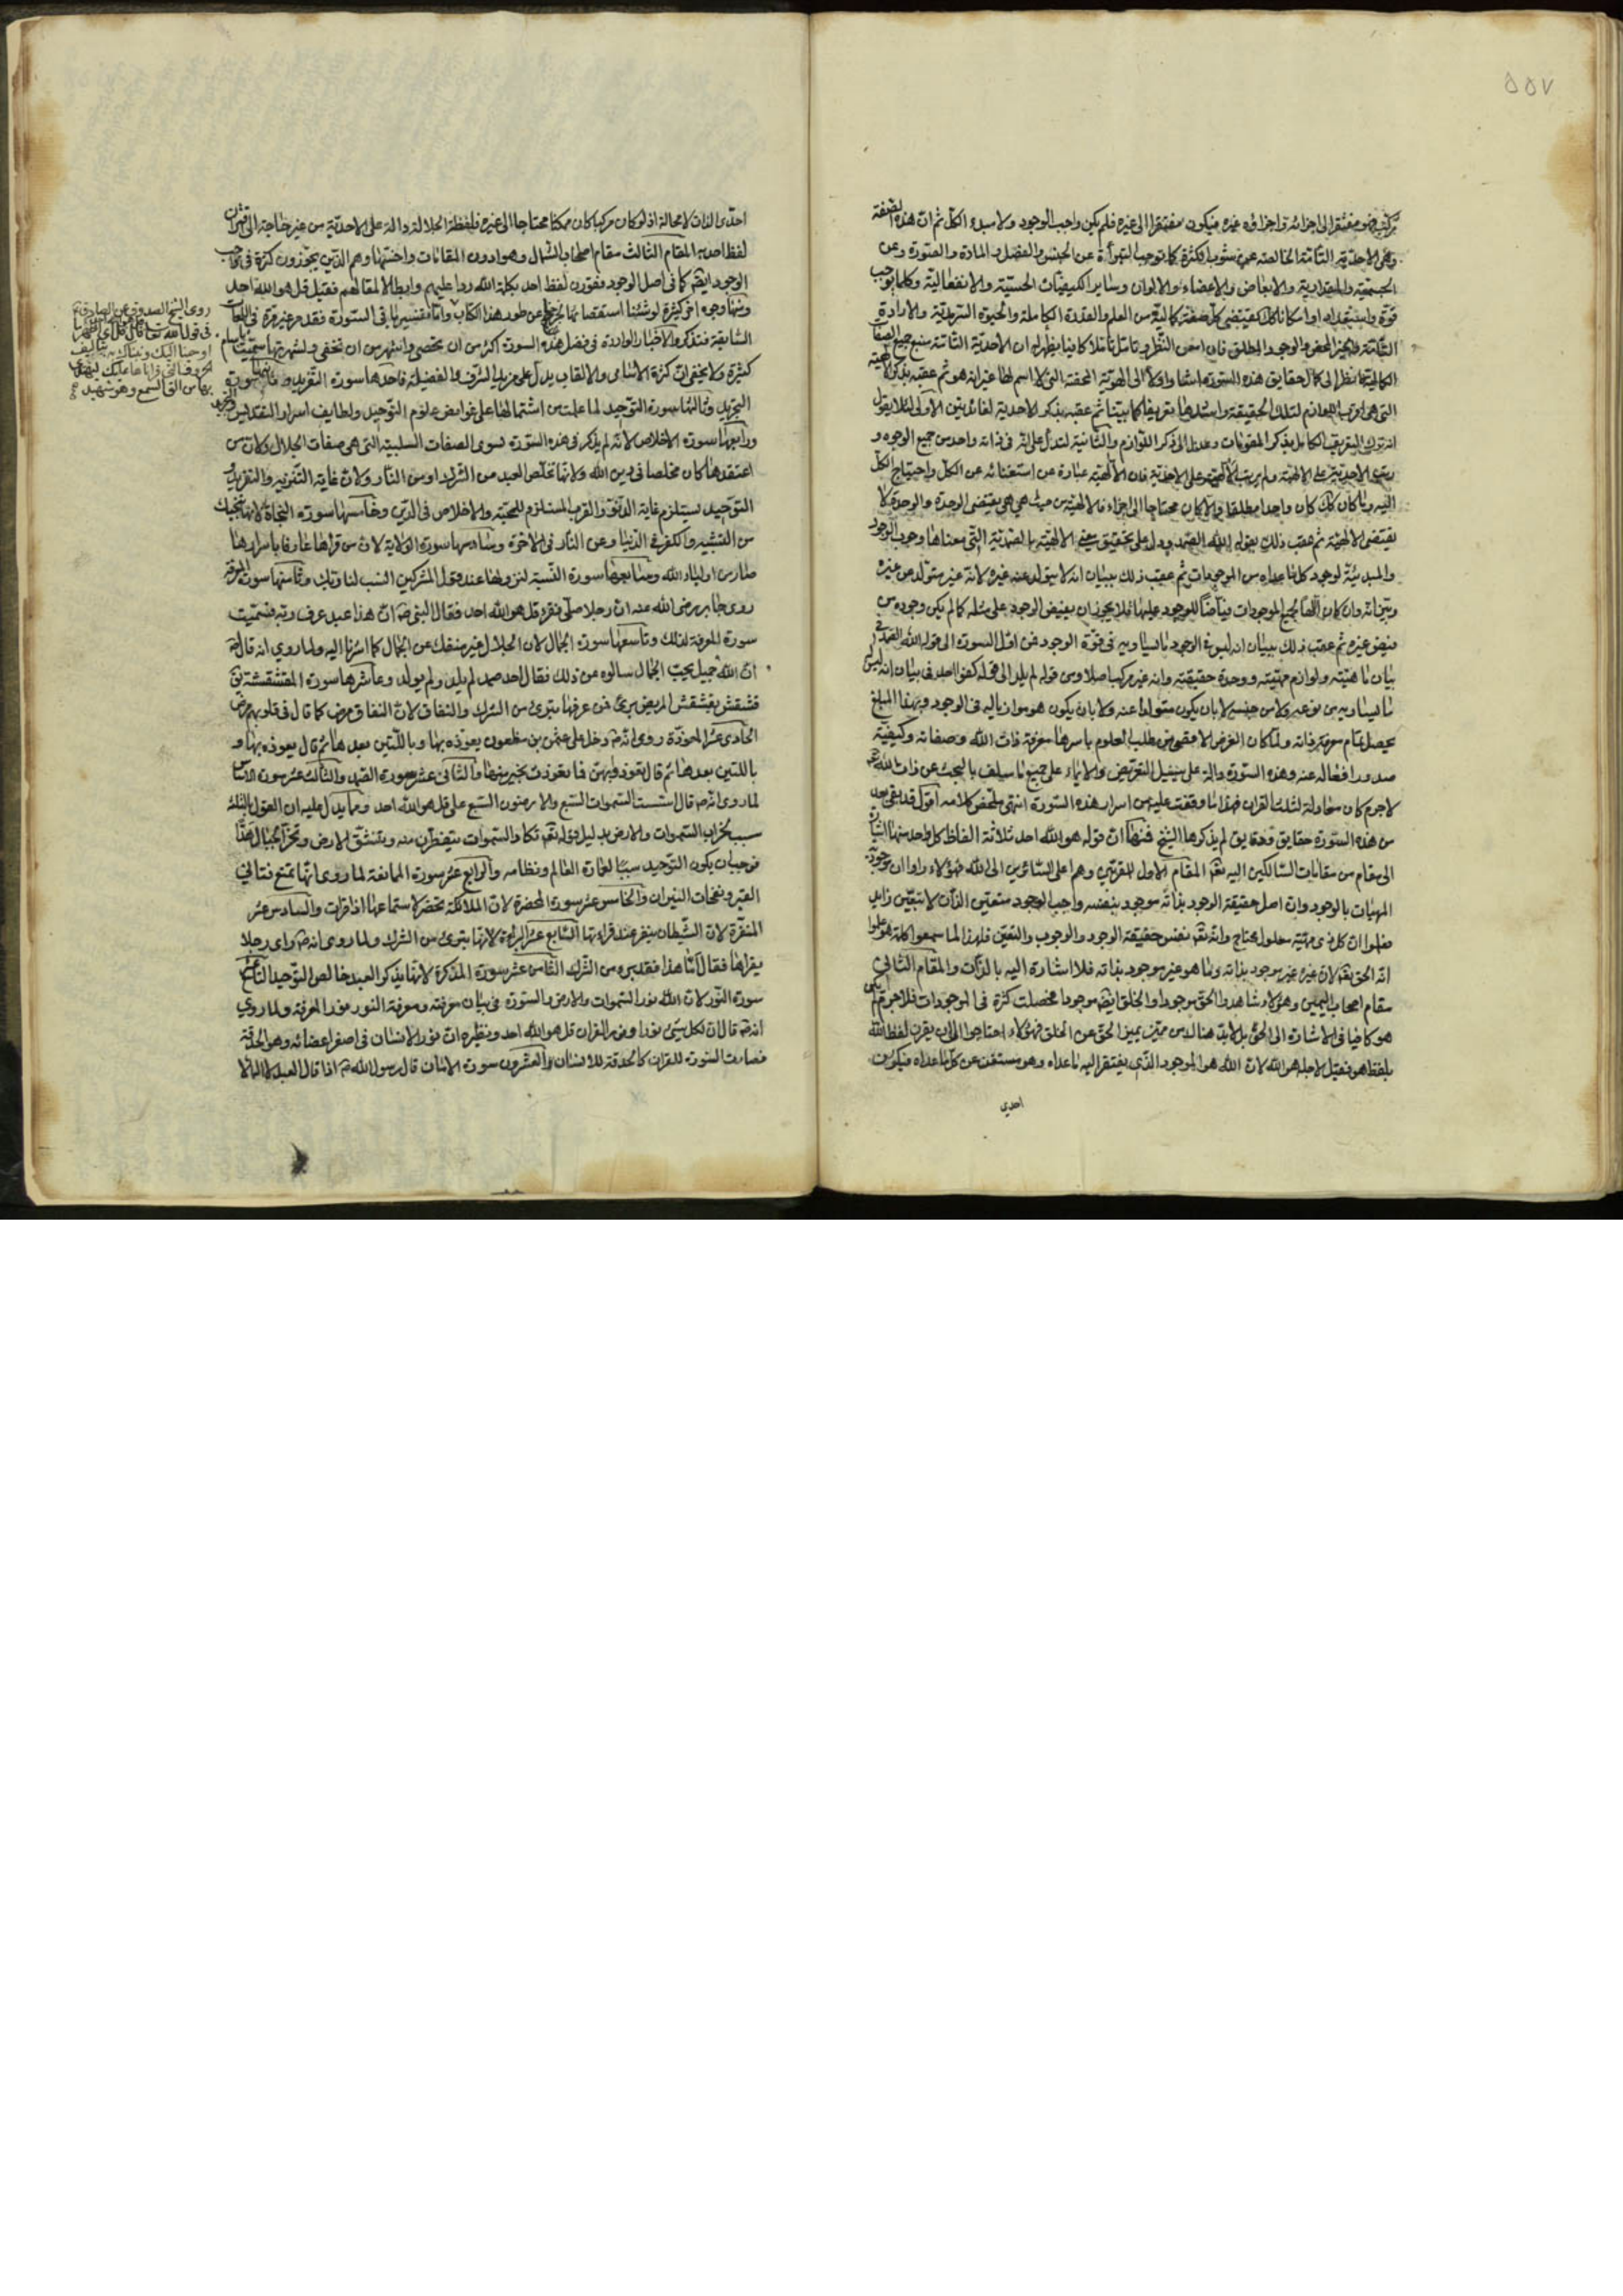 ٥٥٧
مركب فهو مفتقر الى اجزائه واجزاؤه غيره فيكون مفتقرا الى غيره فلم يكن واجب الوجود ولا مبدء الكل ثم ان هذه الصفة
وهى الاحدية التامة الخالصة عن شوب الكثرة كما توجب التبرأة عن الجنس والفصل والمادة والصورة وعن
الجسمية والمقدارية والابعاض والاعضاء والالوان وساير الكيفيات الحسية والانفعالية وكلما يوجب
قوة واستعدادا او امكانا كك يقتضى كل صفة كمالية من العلم والقدرة الكاملة والحيوة السرمدية والارادة
التامة والخير المحض والوجود المطلق فان امعن النظر وتامل تاملا كافيا يظهر له ان الاحدية التامة منبع جميع الصفات
الكمالية فانظر الى كمال حقايق هذه السورة اشار اولا الى الهوية المحضة التى لا اسم لها غير انه هو ثم عقبه بذكر الالهية
التى هى اقرب اللوازم لتلك الحقيقة واشدها تعريفا كما بينا ثم عقبه بذكر الاحدية لفائدتين الاولى لئلا يقول
انه ترك التعريف الكامل بذكر المقومات وعدل الى ذكر اللوازم والثانية لتدل على انه فى ذاته واحد من جميع الوجوه و
رتب الاحدية على الالهية ولم يرتب الالهية على الاحدية فان الالهية عبارة عن استغنائه عن الكل واحتياج الكل
اليه وما كان كك كان واحدا مطلقا والا لكان محتاجا الى اجزاء فالالهية من حيث هى هى يقتضى الوحدة والوحدة لا
يقتضى الالهية ثم عقب ذلك بقوله الله الصمد ودل على تحقيق معنى الالهية بالصمدية التى معناها وجوب الوجود
والمبدئية لوجود كل ما عداه من الموجودات ثم عقب ذلك ببيان انه لا يتولد عنه غيره لانه غير متولد عن غيره
وبين انه وان كان الها لجميع الموجودات فياضا للوجود عليها فلا يجوز ان يفيض الوجود على مثله كما لم يكن وجوده من
فيض غيره ثم عقب ذلك ببيان انه ليس فى الوجود ما يساويه فى قوة الوجود فمن اول السورة الى قوله الله الصمد فى
بيان ماهيته ولوازم مهيته ووحدة حقيقته وانه غير مركب اصلا ومن قوله لم يلد الى قوله كفوا احد فى بيان انه ليس
ما يساويه من نوعه ولا من جنسه لا بان يكون متولدا عنه ولا بان يكون هو موازيا له فى الوجود وبهذا المبلغ
يحصل تمام معرفة ذاته ولما كان الغرض الاقصى من طلب العلوم باسرها معرفة ذات الله وصفاته وكيفية
صدور افعاله عنه وهذه السورة دالة على سبيل التعريض والايماء على جميع ما سيلف بالبحث عن ذات الله
لاجرم كان معادلة لثلث القران فهذا ما وقفت عليه من اسرار هذه السورة انتهى ملخص كلامه اقول قد بقى بعد
من هذه السورة حقايق ودقايق لم يذكرها الشيخ فمنها ان قوله هو الله احد ثلاثة الفاظ كل واحد منها اشارة
الى مقام من مقامات السالكين اليه تعم المقام الاول للمقربين وهم اعلى السائرين الى الله فهؤلاء راوا ان موجودية
المهيات بالوجود وان اصل حقيقة الوجود بذاته موجود بنفسه واجب الوجود متعين الذات لا بتعين زايد
فعلموا ان كل ذى مهية معلول محتاج وانه تعم نفس حقيقة الوجود والوجوب والتعين فلهذا لما سمعوا كلمة هو علموا
انه الحق تعم لان غيره غير موجود بذاته وما هو غير موجود بذاته فلا اشارة اليه بالذات والمقام الثانى
مقام اصحاب اليمين وهؤلاء شاهدوا الحق موجودا والخلق ايضم موجودا فحصلت كثرة فى الموجودات فلا جرم لم يكن
هو كافيا فى الاشارة الى الحق بل لابد هناك من مميز يميز الحق عن الخلق فهؤلاء احتاجوا الى ان يقرن لفظ الله
بلفظ هو فقيل لاجله هو الله لان الله هو الموجود الذى يفتقر اليه ما عداه وهو مستغن عن كل ما عداه فيكون
احدى
احدى الذات لا محالة اذ لو كان مركبا كان ممكنا محتاجا الى غيره فلفظة الجلالة دالة على الاحدية من غير حاجة الى اقتران
لفظ احد به المقام الثالث مقام اصحاب الشمال وهو ادون المقامات واخسها وهم الذين يجوزون كثرة فى واجب
الوجود ايضم كما فى اصل الوجود فقورن لفظ احد بكلمة الله ردا عليهم وابطالا لمقالهم فقيل قل هو الله احد
ومنها وجوه اخر كثيرة لو شئنا استقصائها لخرج عن طور هذا الكتاب واما تفسير باقى السورة فقد مر غير مرة فى اللمعات
السابقة فنذكر الاخبار الواردة فى فضل هذه السورة اكثر من ان تحصى واشهر من ان تخفى ولشهرتها سميت باسام
كثيرة ولا يخفى ان كثرة الاسامى والالقاب يدل على مزيد الشرف والفضيلة فاحدها سورة التفريد وثانيها سورة
التجريد وثالثها سورة التوحيد لما علمت من اشتمالها على غوامض علوم التوحيد ولطايف اسرار التقديس
ورابعها سورة الاخلاص لانه لم يذكر فى هذه السورة سوى الصفات السلبية التى هى صفات الجلال ولان من
اعتقدها كان مخلصا فى دين الله ولانها تخلص العبد من الشرك او من النار ولان غاية التنزيه والتفريد و
التوحيد يستلزم غاية الدنو والقرب المستلزم للمحبة والاخلاص فى الدين وخامسها سورة النجاة لانها تنجيك
من التشبيه والكفر فى الدنيا وعن النار فى الاخرة وسادسها سورة الولاية لان من قراها عارفا باسرارها
صار من اولياء الله وسابعها سورة النسبة لنزولها عند قول المشركين انسب لنا ربك وثامنها سورة المعرفة
روى جابر رضى الله عنه ان رجلا صلى فقرء قل هو الله احد فقال النبى ص ان هذا عبد عرف ربه فسميت
سورة المعرفة لذلك وتاسعها سورة الجمال لان الجلال غير منفك عن الجمال كما اشرنا اليه ولما روي انه قال ص
ان الله جميل يحب الجمال سالوه عن ذلك فقال احد صمد لم يلد ولم يولد وعاشرها سورة المقشقشة يق
قشقش يقشقش المريض برئ فمن عرفها تبرئ من الشرك والنفاق لان النفاق مرض كما قال فى قلوبهم مرض
الحادى عشر المعوذة روى انه ص دخل على عثمن بن مظعون يعوذه بها وباللتين بعدها ثم قال يعوذه بها و
باللتين بعدها ثم قال تعوذ فبهن فما تعوذت بخير منها والثانى عشر سورة الصمد والثالث عشر سورة الاساس
لما روى انه ص قال اسست السموات السبع والارضون السبع على قل هو الله احد ومما يدل عليه ان القول بالثلثة
سبب لخراب السموات والارض بدليل قوله تعم تكاد السموات يتفطرن منه وتنشق الارض وتخر الجبال هدا
فوجب ان يكون التوحيد سببا لعمارة العالم ونظامه والرابع عشر سورة المانعة لما روى انها تمنع فتانى
القبر ونفحات النيران والخامس عشر سورة المحضرة لان الملائكة تحضر لاستماعها اذا قرات والسادس عشر
المنفرة لان الشيطان ينفر عند قراءتها السابع عشر البراءة لانها تبرئ من الشرك ولما روى انه ص راى رجلا
يقراها فقال اما هذا فقد برء من الشرك الثامن عشر سورة المذكرة لانها يذكر العبد خالص التوحيد التاسع عشر
سورة النور لان الله نور السموات والارض والسورة فى بيان معرفته ومعرفة النور نور المعرفة ولما روي
انه ص قال ان لكل شئ نورا ونور القران قل هو الله احد ونظيره ان نور الانسان فى اصغر اعضائه وهو الحدقة
فصارت السورة للقران كالحدقة للانسان والعشرون سورة الامان قال رسول الله ص اذا قال العبد لا اله الا
روى الشيخ الصدوق عن الصادق ع
فى قول الله تعا قال قل اى اظهر ما
اوحينا اليك ونبأناك به بتأليف
الحروف التى قراناها عليك ليهتدى
بها من القى السمع وهو شهيد